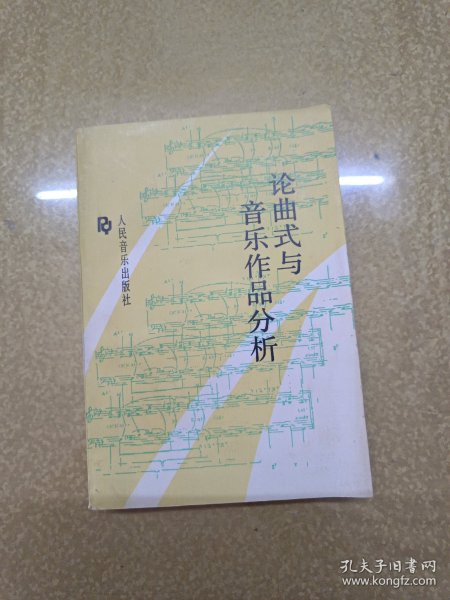 论曲式与
音乐作品分析
人民音乐出版社
孔夫子旧书网
www.kongfz.com